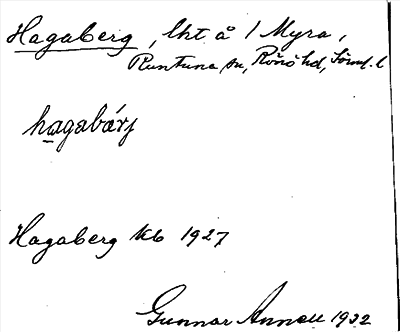 Hagaberg, lht å 1 Myra,
Runtuna sn, Rönö hd, Södml. l
hagabärj
Hagaberg kb 1927
Gunnar Annell 1932